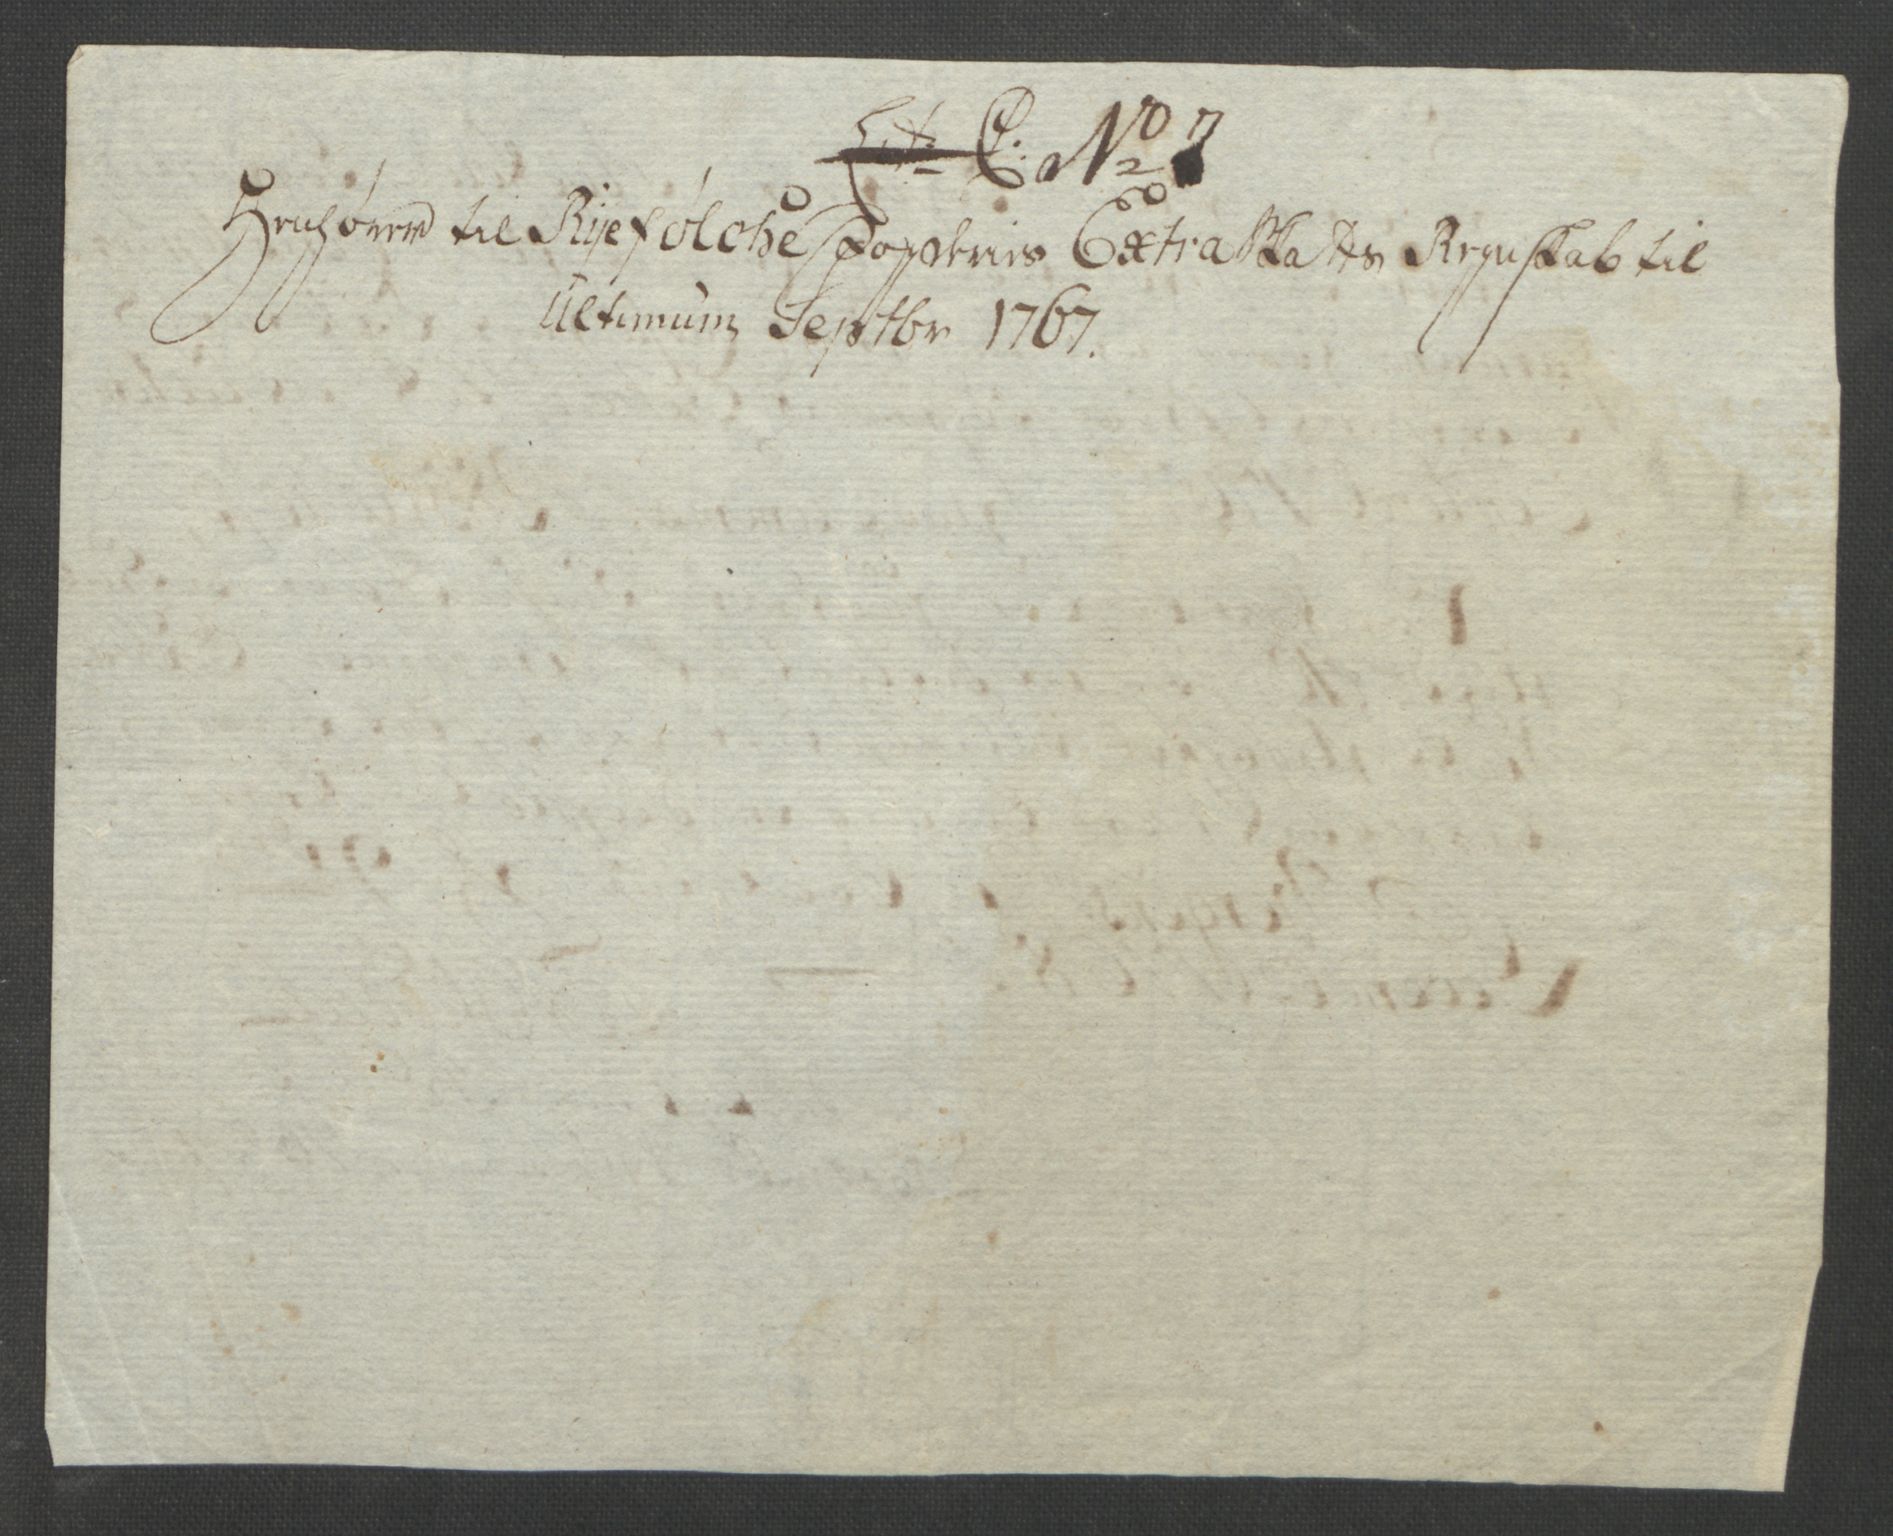 Lit: C. No 7
Henhörend til Ryefölche Fogderies Extra Skatts Regnskab til
Ultimum Septbr 1767.